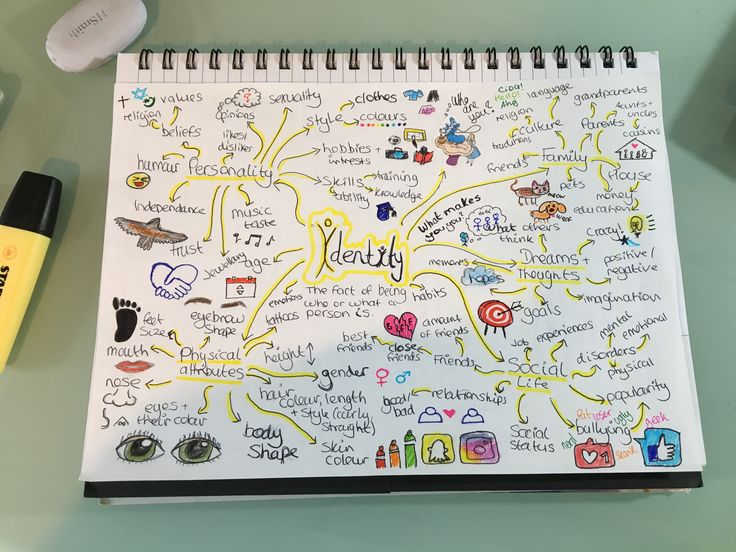 HSmith
STAB
Identity
The fact of being
who or what a
person is.
Personality
values
religion
beliefs
opinions
sexuality
likes/
dislikes
humour
Independance
trust
Jewellery
age
music
taste
style
clothes
colours
hobbies +
interests
Skills
training
ability
knowledge
Who
are
you?
What makes
you you?
Family
Ciao!
Hello!
language
religion
culture
traditions
friends
grandparents
Parents
Aunts +
uncles
cousins
House
money
education
pets
meow
woof
Dreams +
Thoughts
what others
think
memories
hopes
goals
Crazy!
positive/
negative
imagination
habits
emotions
tattoos
Physical
attributes
feet
size
eyebrow
shape
mouth
nose
eyes +
their colour
body
shape
hair
colour, length
+ style (curly,
straight)
height
gender
skin
colour
Social
Life
Job
experiences
disorders
mental
emotional
physical
popularity
bullying
fat
ugly
geek
nerd
Social
status
relationships
good/
bad
Friends
amount
of friends
close
friends
best
friends
1